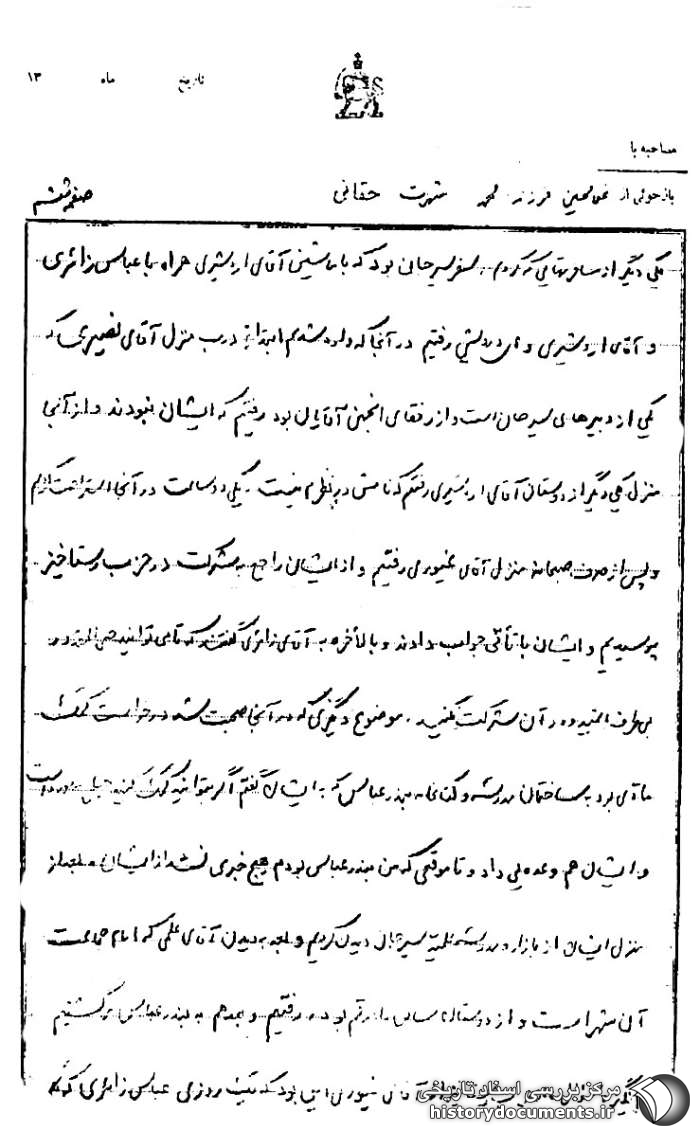 تاریخ ماه ۱۳
مصاحبه با
بازجوئی از غلامحسین فرزند محمد شهرت حقانی صفحه ششم
یکی دیگر از مسافرتهایی که کردم سفر سیرجان بود که با ماشین آقای اردشیری همراه با عباس زائری
و آقای اردشیری و رفتیم در آنجا که وارد شدیم ابتدا به درب منزل آقای نصیری که
یکی از دبیرهای سیرجان است و از رفقای انجمنی آقایان بود رفتیم که ایشان نبودند و از آنجا
منزل یکی دیگر از دوستان آقای اردشیری رفتیم که نامش در نظرم نیست یکی دو ساعت در آنجا استراحت کردیم
و پس از صرف صبحانه منزل آقای غیوری رفتیم و از ایشان راجع به شرکت در حزب رستاخیز
پرسیدیم و ایشان با تأنی جواب دادند و بالأخره به آقای زائری گفتند که تا می توانید
بی طرف باشید و در آن شرکت نکنید. موضوع دیگری که در آنجا صحبت شد درخواست کمک
مادی برد به ساختمان مدرسه و کتابخانه بندرعباس که به ایشان گفتم اگر بتوانید کمک کنید است
و ایشان هم وعده یی داد و تا موقعی که من بندرعباس بودم هیچ خبری نشد از ایشان. بعد از
منزل ایشان از بازار و مدرسه علمیه سیرجان دیدن کردیم و بعد به دیدن آقای علمی که امام جماعت
آن شهر است و از دوستان بود رفتیم و بعد هم به بندرعباس برگشتیم
آقای غیوری این بود که یک روزی عباس زائری که
مرکز بررسی اسناد تاریخی
historydocuments.ir